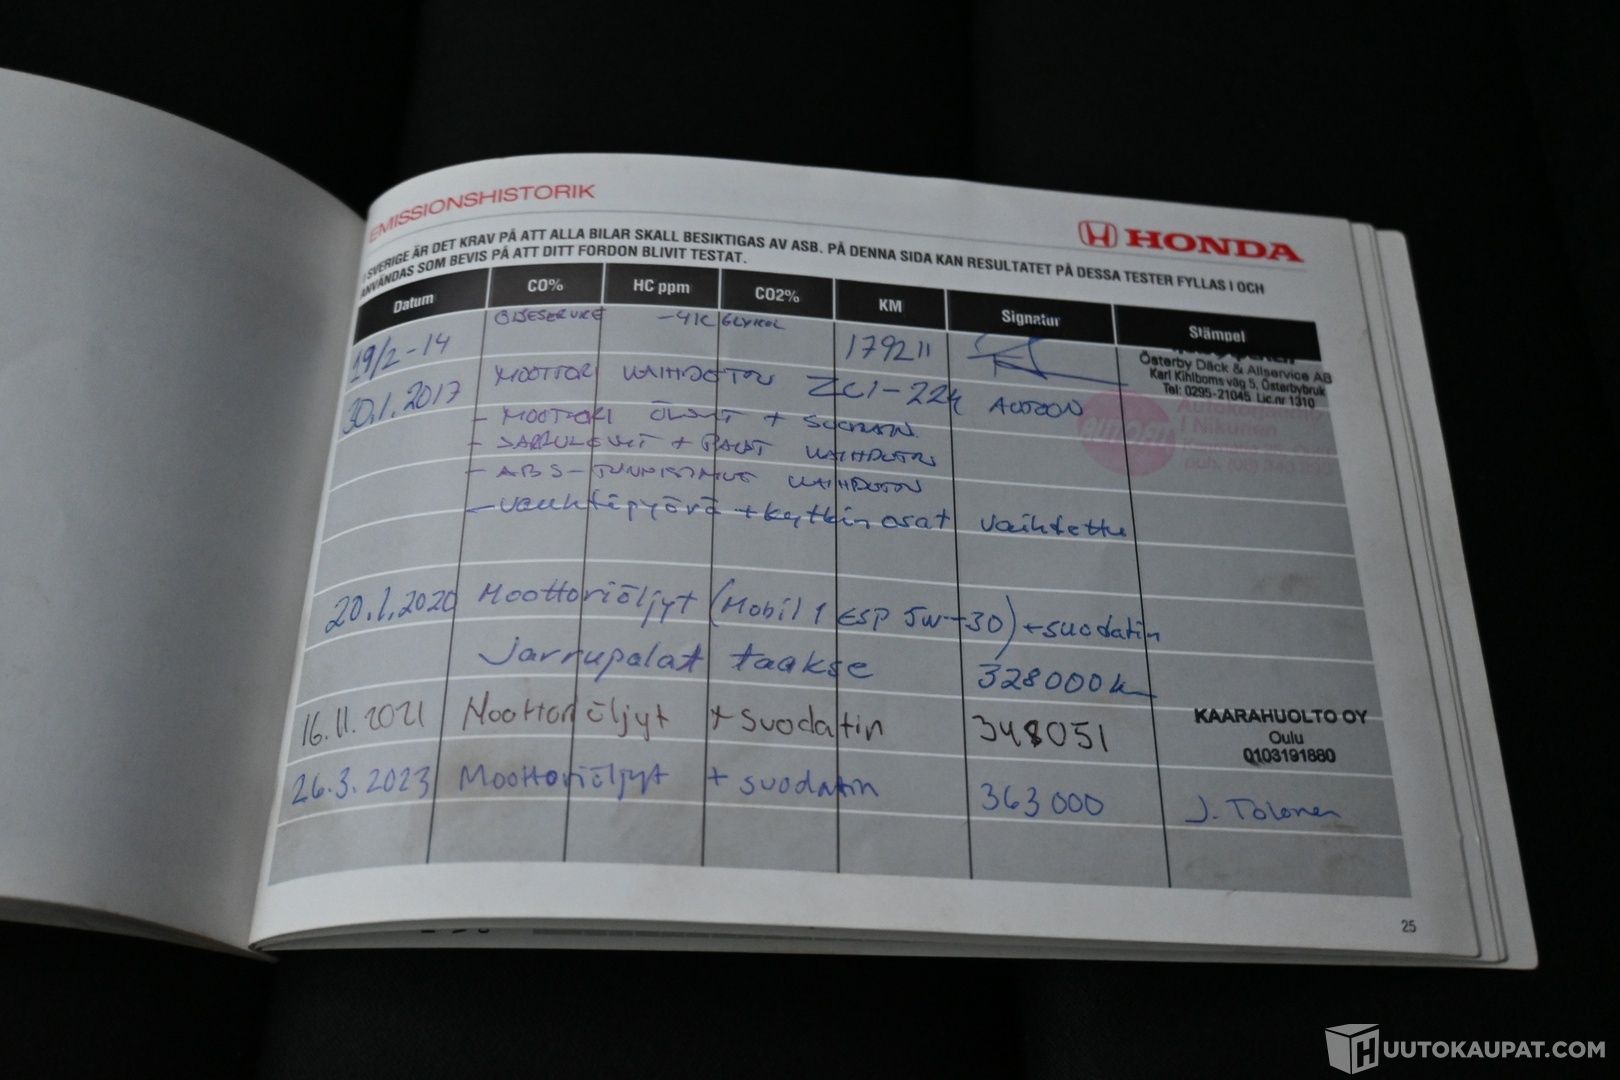 EMISSIONSHISTORIK
HONDA
I SVERIGE ÄR DET KRAV PÅ ATT ALLA BILAR SKALL BESIKTIGAS AV ASB. PÅ DENNA SIDA KAN RESULTATET PÅ DESSA TESTER FYLLAS I OCH
ANVÄNDAS SOM BEVIS PÅ ATT DITT FORDON BLIVIT TESTAT.
Datum CO% HC ppm CO2% KM Signatur Stämpel
19/2-14 OLJESERVICE -41C GLYKOL 179211
Österby Däck & Allservice AB
Karl Kihlboms väg 5, Österbybruk
Tel: 0295-21045 Lic.nr 1310
30.1.2017 MOOTTORI VAIHDETTU ZC1-224 AUTOON
Autokorjaamo
J Nikunen
- MOOTTORI ÖLJYT + SUODATIN
- JARRULEVYT + PALAT VAIHDETTU
- ABS-TUNNISTIMET VAIHDETTU
- vauhtipyörä + kytkin osat vaihdettu
20.1.2020 Moottoriöljyt (Mobil 1 ESP 5w-30) + suodatin
Jarrupalat taakse 328000 km
16.11.2021 Moottoriöljyt + suodatin 348051
KAARAHUOLTO OY
Oulu
0103191880
26.3.2023 Moottoriöljyt + suodatin 363 000 J. Tolonen
25
HUUTOKAUPAT.COM